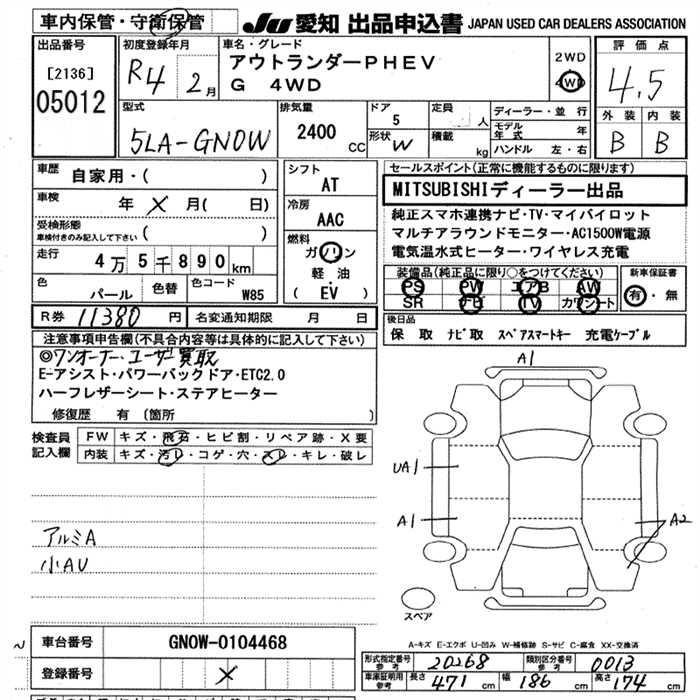 車内保管・守衛保管
JU 愛知 出品申込書 JAPAN USED CAR DEALERS ASSOCIATION
出品番号
[2136]
05012
初度登録年月
R4 2月
車名・グレード
アウトランダーPHEV
G 4WD
2WD
4WD
評価点
4.5
外装 内装
B B
型式
5LA-GN0W
排気量
2400
CC
ドア
5
形状
W
定員
人
積載
kg
ディーラー・並行
モデル年式 年
ハンドル 左・右
車歴
自家用・( )
車検
年 X 月( 日)
受検形態
車検付きのみ記入して下さい ( )
走行
4万5千890km
色
パール
色替
色コード
W85
シフト
AT
冷房
AAC
燃料
ガソリン
軽油
( EV )
R券 11380 円
名変通知期限 月 日
セールスポイント(正常に機能するものに限ります)
MITSUBISHIディーラー出品
純正スマホ連携ナビ・TV・マイパイロット
マルチアラウンドモニター・AC1500W電源
電気温水式ヒーター・ワイヤレス充電
装備品(純正品に限り○をつけてください)
PS PW エアB AW
SR ナビ TV カワシート
新車保証書
有・無
後日品
保 取 ナビ取 スペアスマートキー 充電ケーブル
注意事項申告欄(不具合内容等は具体的に記入して下さい)
◎ワンオーナー・ユーザー買取
E-アシスト・パワーバックドア・ETC2.0
ハーフレザーシート・ステアヒーター
修復歴 有 (箇所 )
検査員記入欄
FW キズ・飛石・ヒビ割・リペア跡・X要
内装 キズ・汚レ・コゲ・穴・スレ・キレ・破レ
アルミA
小AU
A1
UA1
A1
A2
スペア
A-キズ E-エクボ U-凹み W-補修跡 S-サビ C-腐食 XX-交換済
車台番号 GN0W-0104468
登録番号 X
型式指定番号 参考 20268
類別区分番号 参考 0013
車庫証明用参考 長さ 471 cm 幅 186 cm 高さ 174 cm